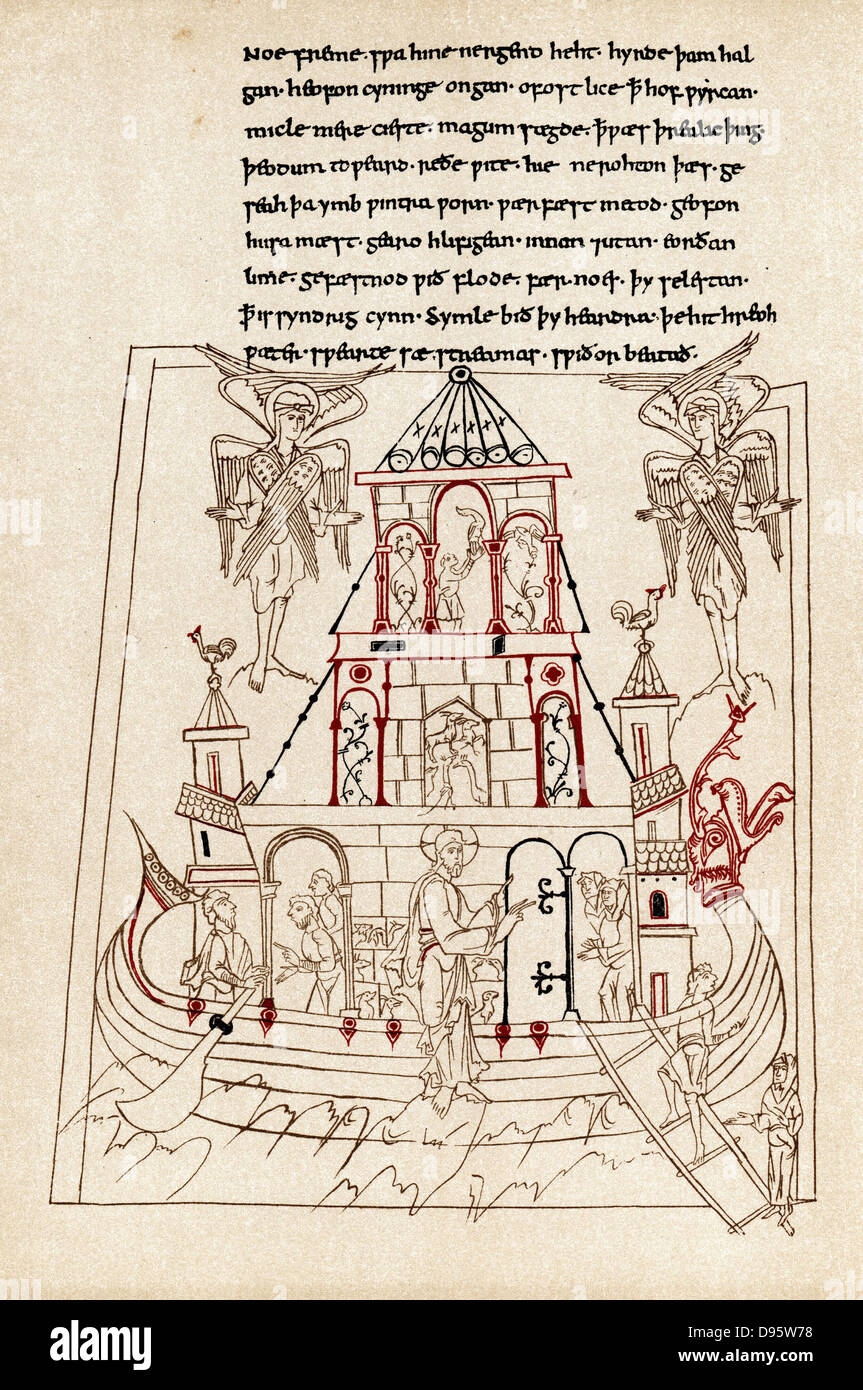 Noe freme. sƿa hine nergend heht. hyrde þam hal
gan. heofon cyninge ongan. ofost lice ꝥ hof ƿyrcan.
micle mere cieste. magum sægde. ꝥ ƿæs þrealic þing.
þeodum toƿeard. reðe ƿite. hie ne rohton þæs. ge
seah þa ymb ƿintra ƿorn. ƿærfæst metod. geofon
husa mæst. gearo hlifigean. innan ⁊utan. eorðan
lime. gefæstnod ƿið flode. fær. noes. þy selestan.
ꝥ is syndrig cynn. Symle bið þy heardra. þe hit hreoh
ƿæter. sƿearte sæ streamas. sƿiðor beatað.
alamy
Image ID: D95W78
www.alamy.com